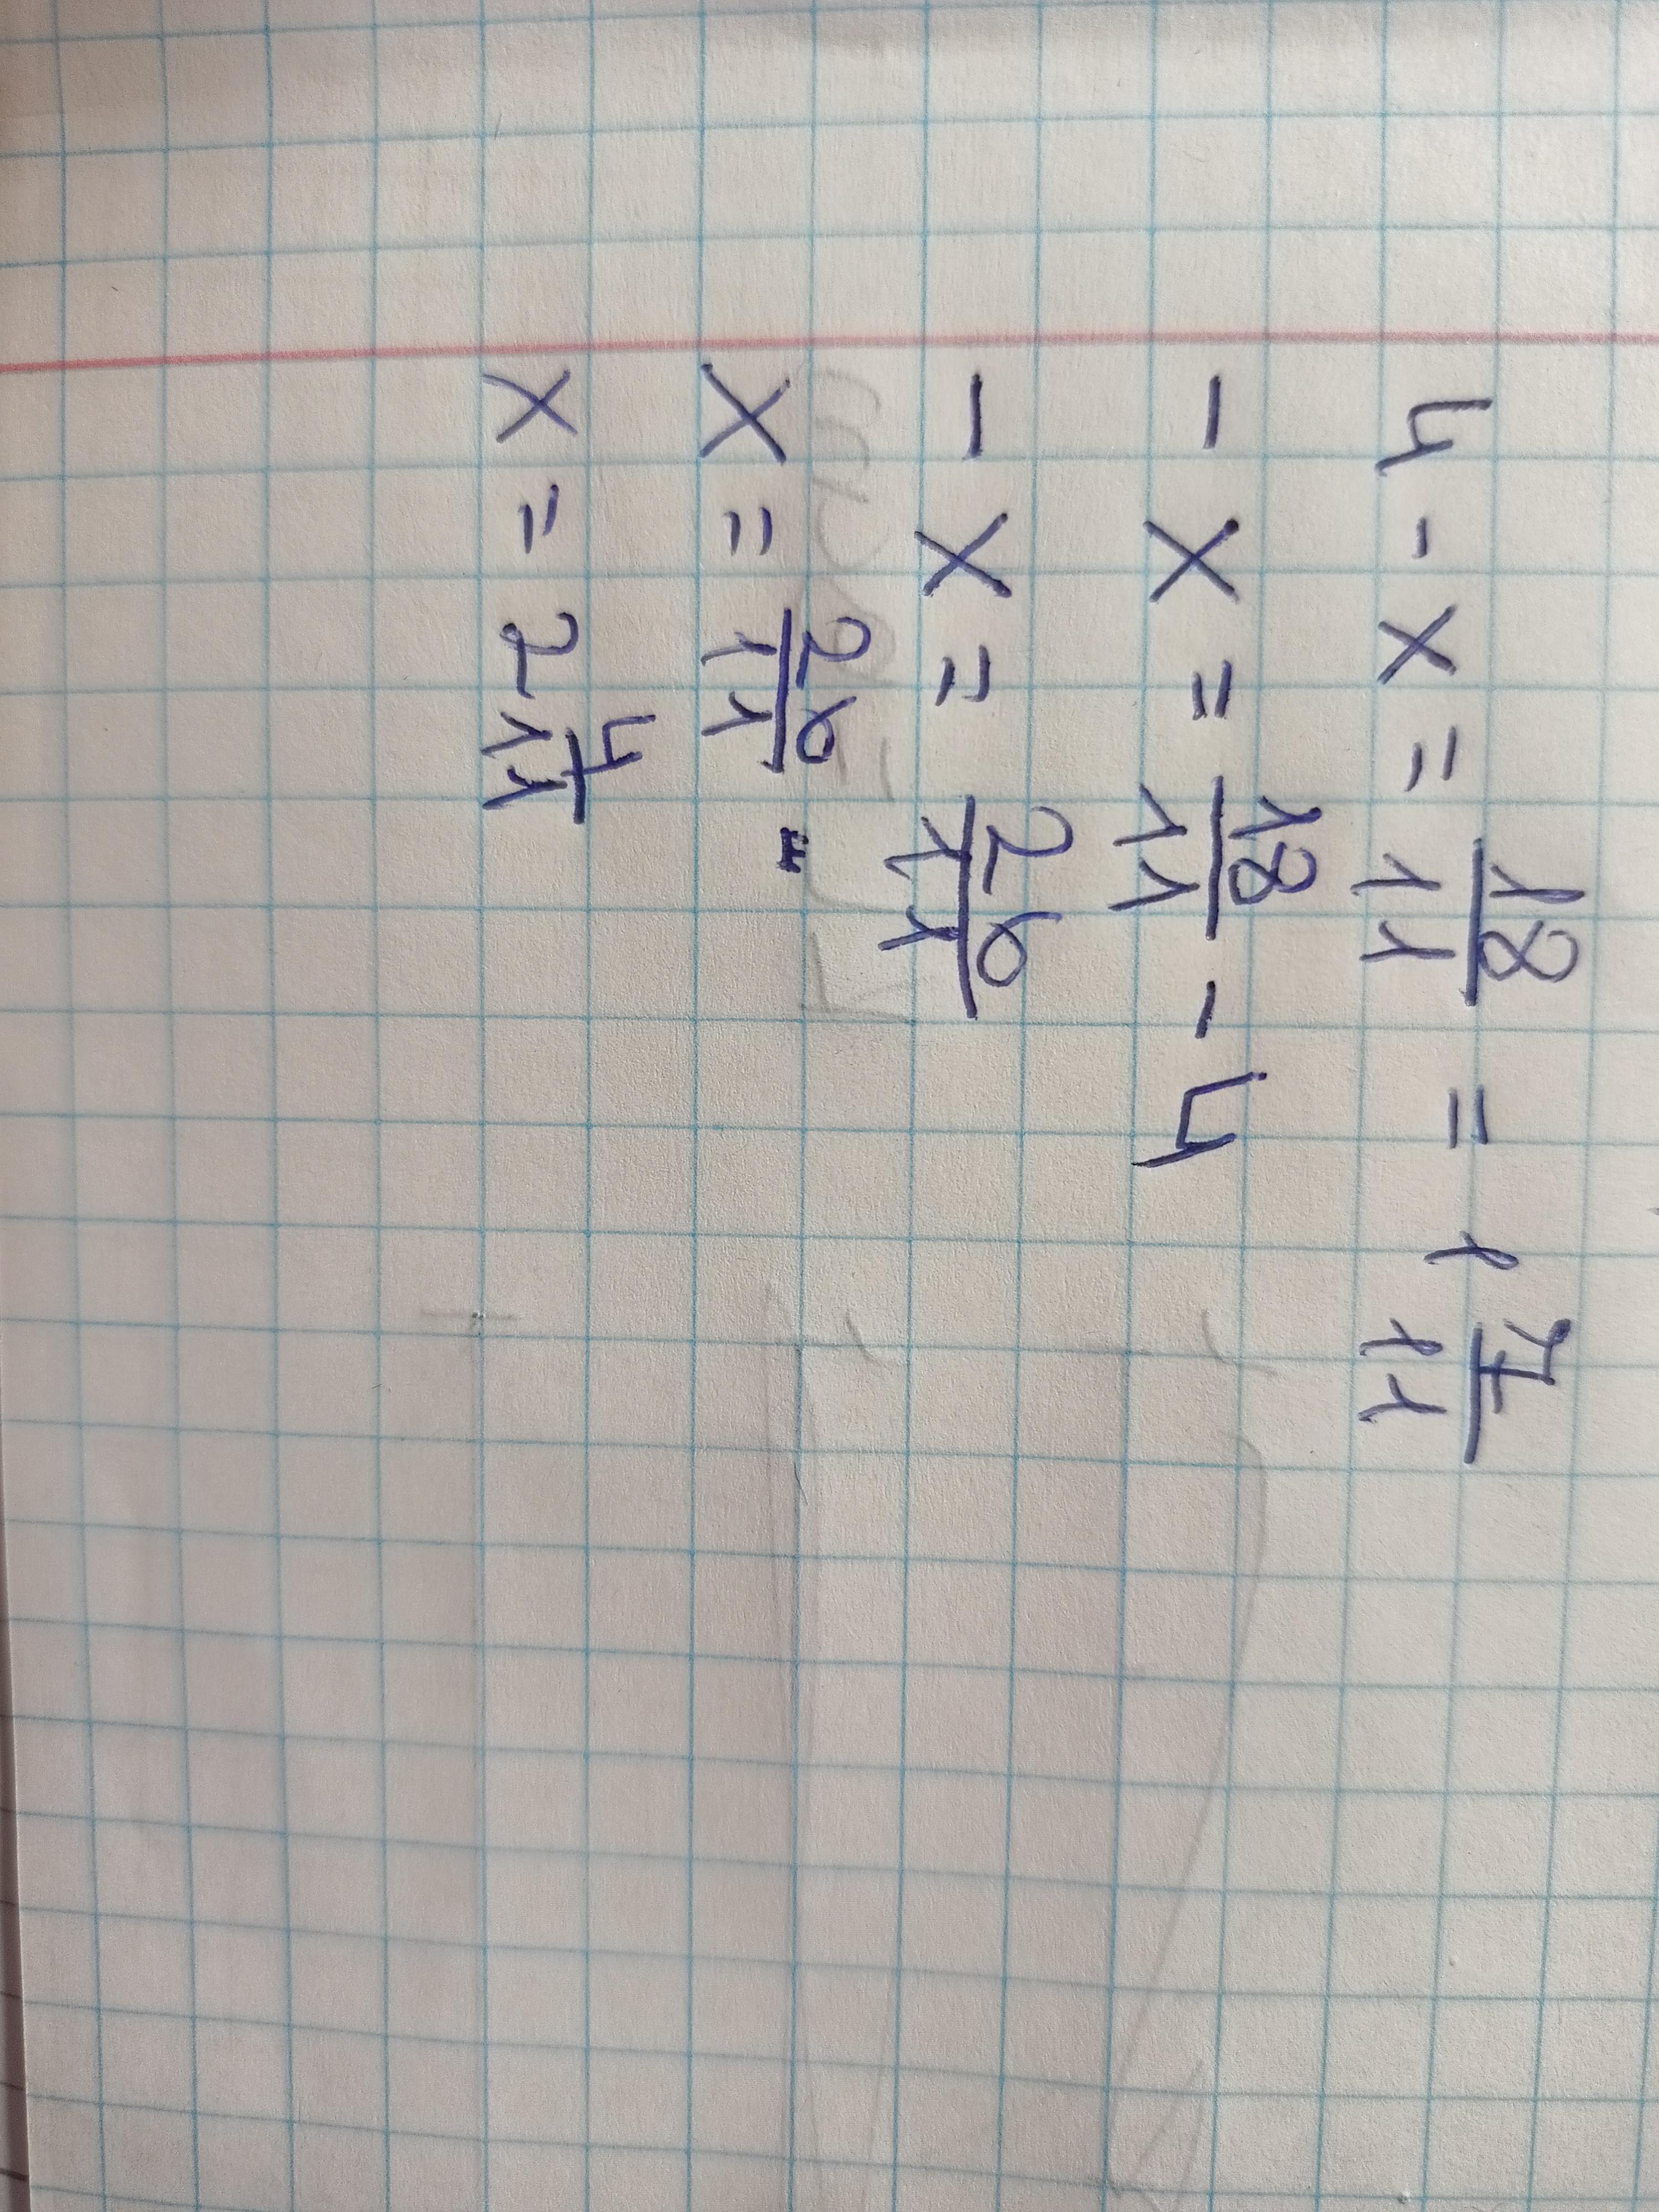 4 - x = 18/11 = 1 7/11
- x = 18/11 - 4
- x = 26/11
x = 26/11
x = 2 4/11